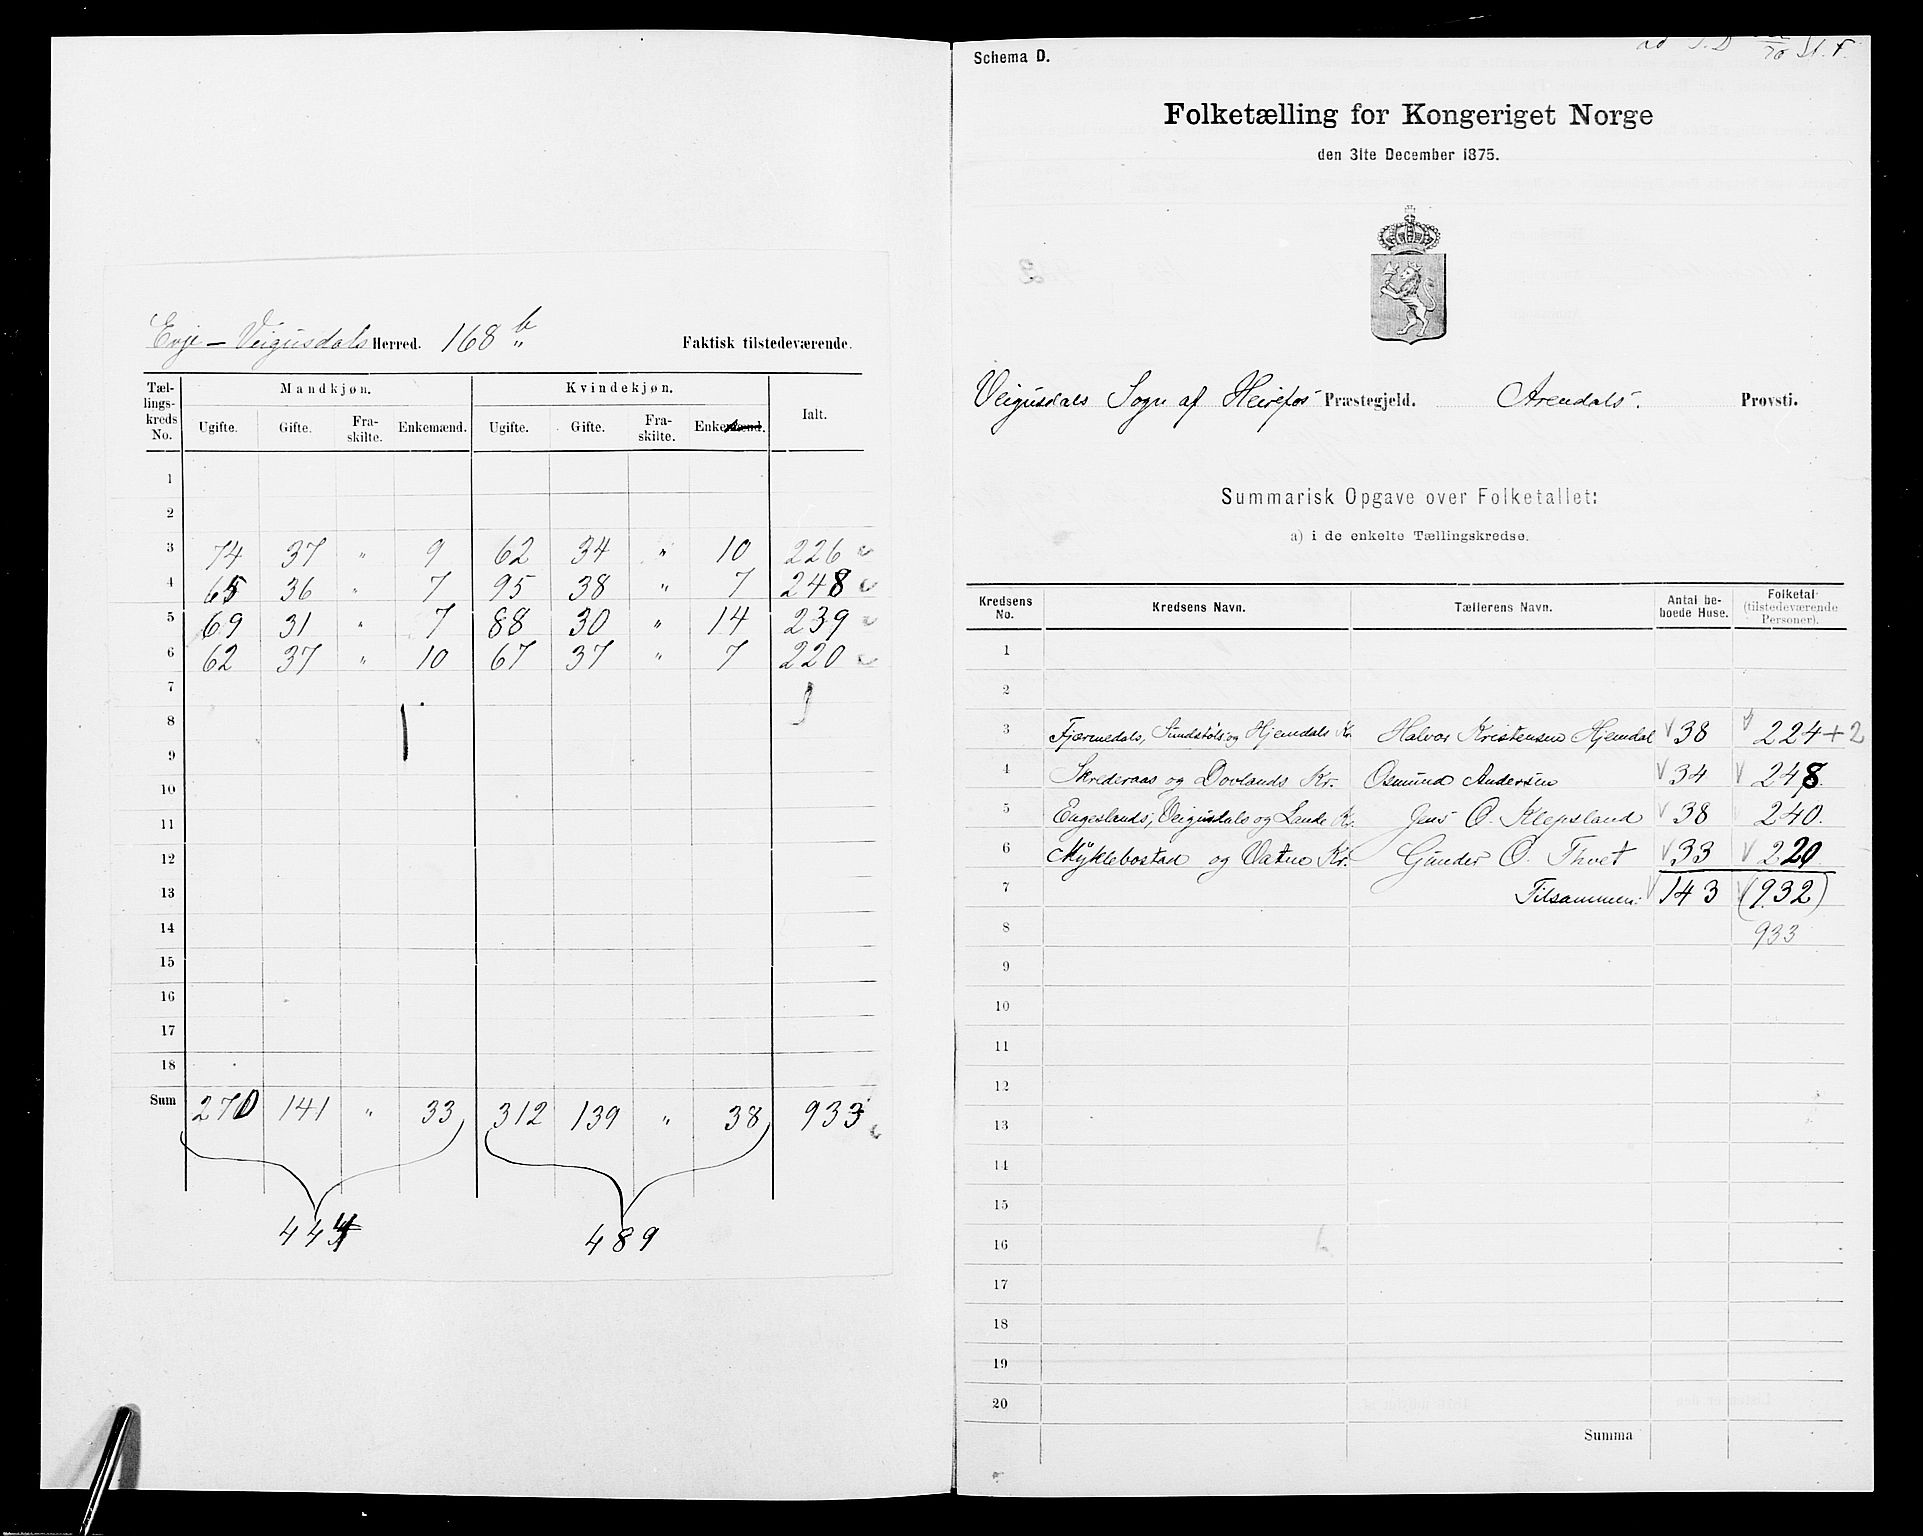 Evje - Veigusdals Herred. 168 b Faktisk tilstedeværende.
Tællingskreds No. Mandkjøn. Kvindekjøn. Ialt.
Ugifte. Gifte. Fraskilte. Enkemænd. Ugifte. Gifte. Fraskilte. Enkemænd.
1
2
3 74 37 " 9 62 34 " 10 226
4 65 36 " 7 95 38 " 7 248
5 69 31 " 7 88 30 " 14 239
6 62 37 " 10 67 37 " 7 220
7
8
9
10
11
12
13
14
15
16
17
18
Sum 270 141 " 33 312 139 " 38 933
444 489
Schema D.
Folketælling for Kongeriget Norge
den 31te December 1875.
Veigusdals Sogn af Heirefos Præstegjeld. Arendals Provsti.
Summarisk Opgave over Folketallet:
a) i de enkelte Tællingskredse.
Kredsens No. Kredsens Navn. Tællerens Navn. Antal beboede Huse. Folketal (tilstedeværende Personer).
1
2
3 Fjærmedals, Sundstøls og Hjemdals Kr. Halvor Kristensen Hjemdal 38 224 + 2
4 Skrederaas og Dovlands Kr. Osmund Andersen 34 248.
5 Engeslands, Veigusdals og Lande Kr. Jens O. Klepsland 38 240.
6 Myklebostad og Vatne Kr. Gunder O. Thvet 33 220
7 Tilsammen: 143 (932)
8 933
9
10
11
12
13
14
15
16
17
18
19
20
Summa